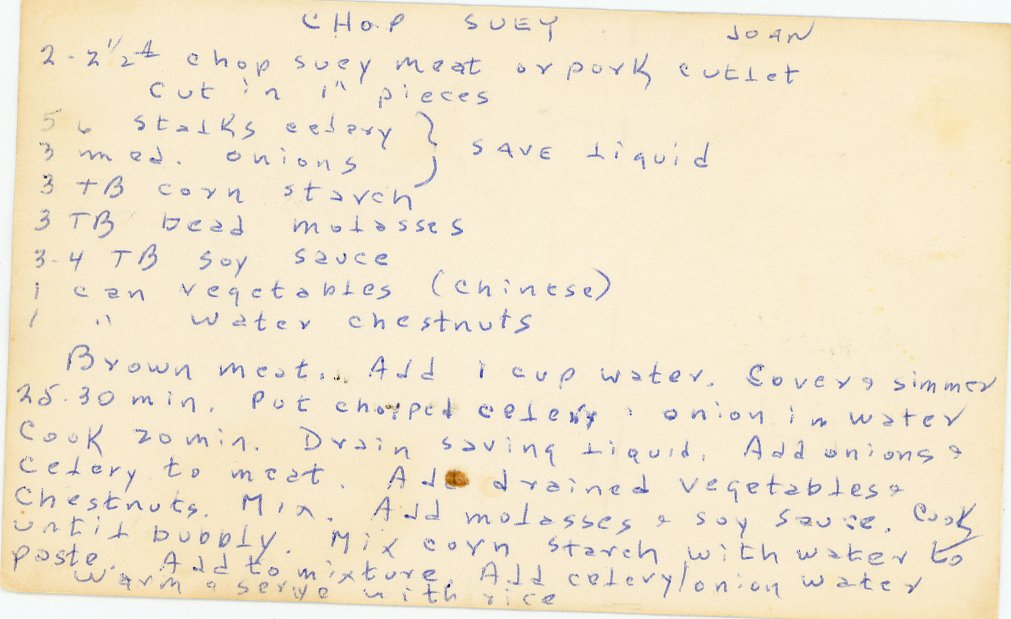 CHOP SUEY JOAN
2-2½# chop suey meat or pork cutlet
cut in 1" pieces
5 6 stalks celery } SAVE liquid
3 med. onions
3 TB corn starch
3 TB bead molasses
3-4 TB soy sauce
1 can vegetables (Chinese)
1 " water chestnuts
Brown meat. Add 1 cup water. Cover & simmer
25-30 min. Put chopped celery & onion in water
Cook 20 min. Drain saving liquid. Add onions &
celery to meat. Add drained vegetables &
Chestnuts. Mix. Add molasses & soy sauce. Cook
until bubbly. Mix corn starch with water to
paste. Add to mixture. Add celery/onion water
Warm & serve with rice